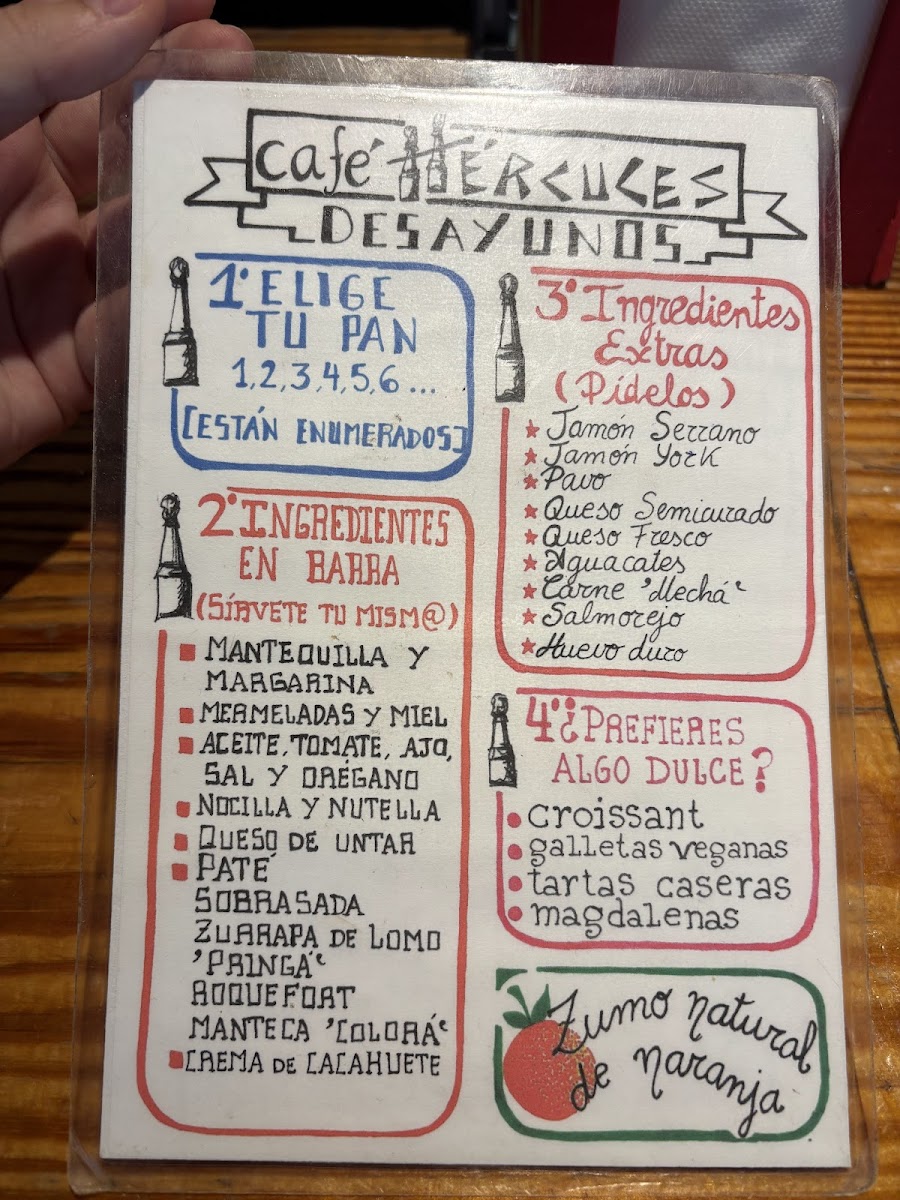 Café HÉRCULES
DESAYUNOS
1º ELIGE
TU PAN
1,2,3,4,5,6...
[ESTÁN ENUMERADOS]
2º INGREDIENTES
EN BARRA
(SÍRVETE TU MISM@)
MANTEQUILLA Y
MARGARINA
MERMELADAS Y MIEL
ACEITE, TOMATE, AJO,
SAL Y ORÉGANO
NOCILLA Y NUTELLA
QUESO DE UNTAR
PATÉ
SOBRASADA
ZURRAPA DE LOMO
'PRINGÁ'
ROQUEFORT
MANTECA 'COLORÁ'
CREMA DE CACAHUETE
3º Ingredientes
Extras
(Pídelos)
Jamón Serrano
Jamón York
Pavo
Queso Semicurado
Queso Fresco
Aguacates
Carne 'Mechá'
Salmorejo
Huevo duro
4º ¿PREFIERES
ALGO DULCE?
croissant
galletas veganas
tartas caseras
magdalenas
Zumo natural
de naranja